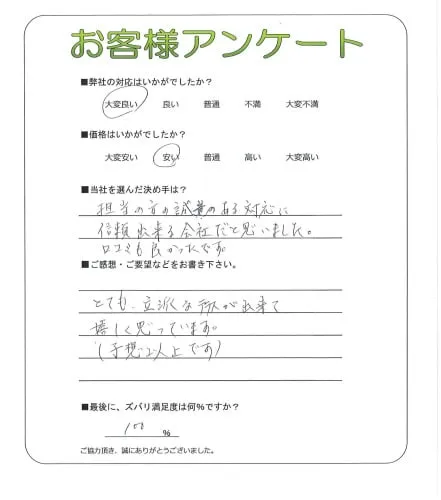 お客様アンケート
■弊社の対応はいかがでしたか？
大変良い 良い 普通 不満 大変不満
■価格はいかがでしたか？
大変安い 安い 普通 高い 大変高い
■当社を選んだ決め手は？
担当の方の誠意のある対応に
信頼出来る会社だと思いました。
口コミも良かったです
■ご感想・ご要望などをお書き下さい。
とても、立派な が出来て
嬉しく思っています。
(予想以上です)
■最後に、ズバリ満足度は何％ですか？
100 %
ご協力頂き、誠にありがとうございました。